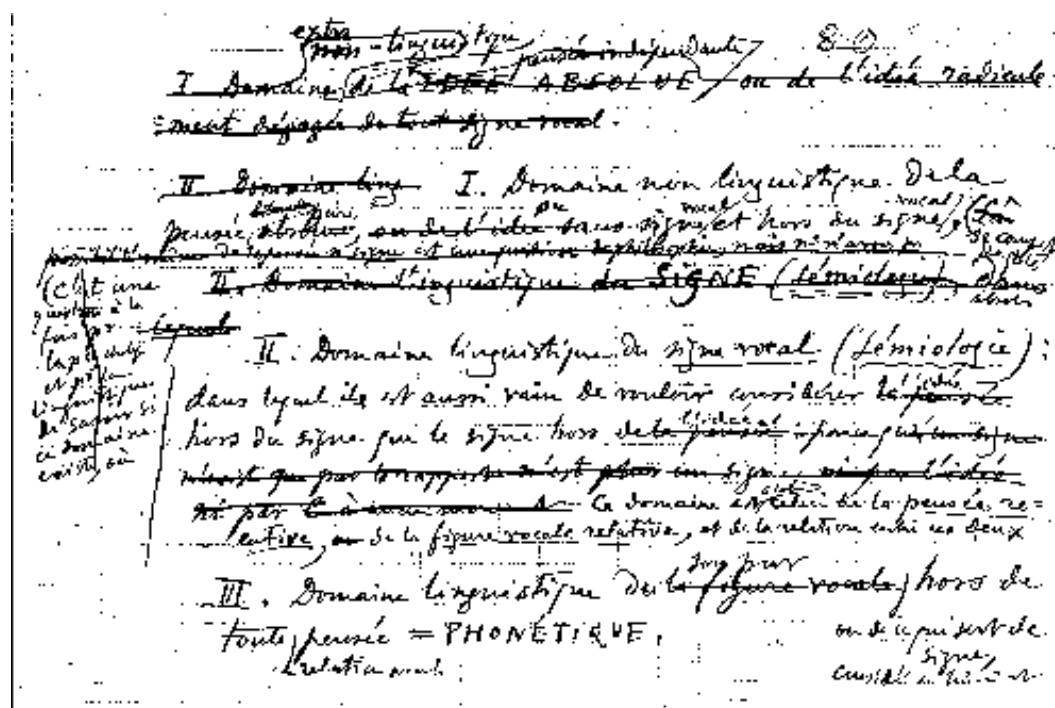 extra
non-linguistique
pensée indépendante
I Domaine de la IDÉE ABSOLUE / ou de l'idée radicale
=ment dégagée de tout signe vocal.
II Domaine ling I. Domaine non linguistique de la
pure
vocal
vocal
pensée absolue, ou de l'idée sans signe et hors du signe
II. Domaine linguistique du SIGNE (Sémiologie)
(C'est une
question à la
fois pr
la psychologie
et pr la
linguistique
de savoir si
ce domaine
existe ou
II. Domaine linguistique du signe vocal (Sémiologie) :
l'idée
dans lequel il est aussi vain de vouloir considérer la pensée
l'idée
hors du signe que le signe hors de la pensée
Ce domaine est celui de la pensée re=
lative, de la figure vocale relative, et de la relation entre ces deux
son pur
III. Domaine linguistique du la figure vocale hors de
toute pensée = PHONÉTIQUE.
relation
ou de ce qui sert de
signe,
considéré en lui-même